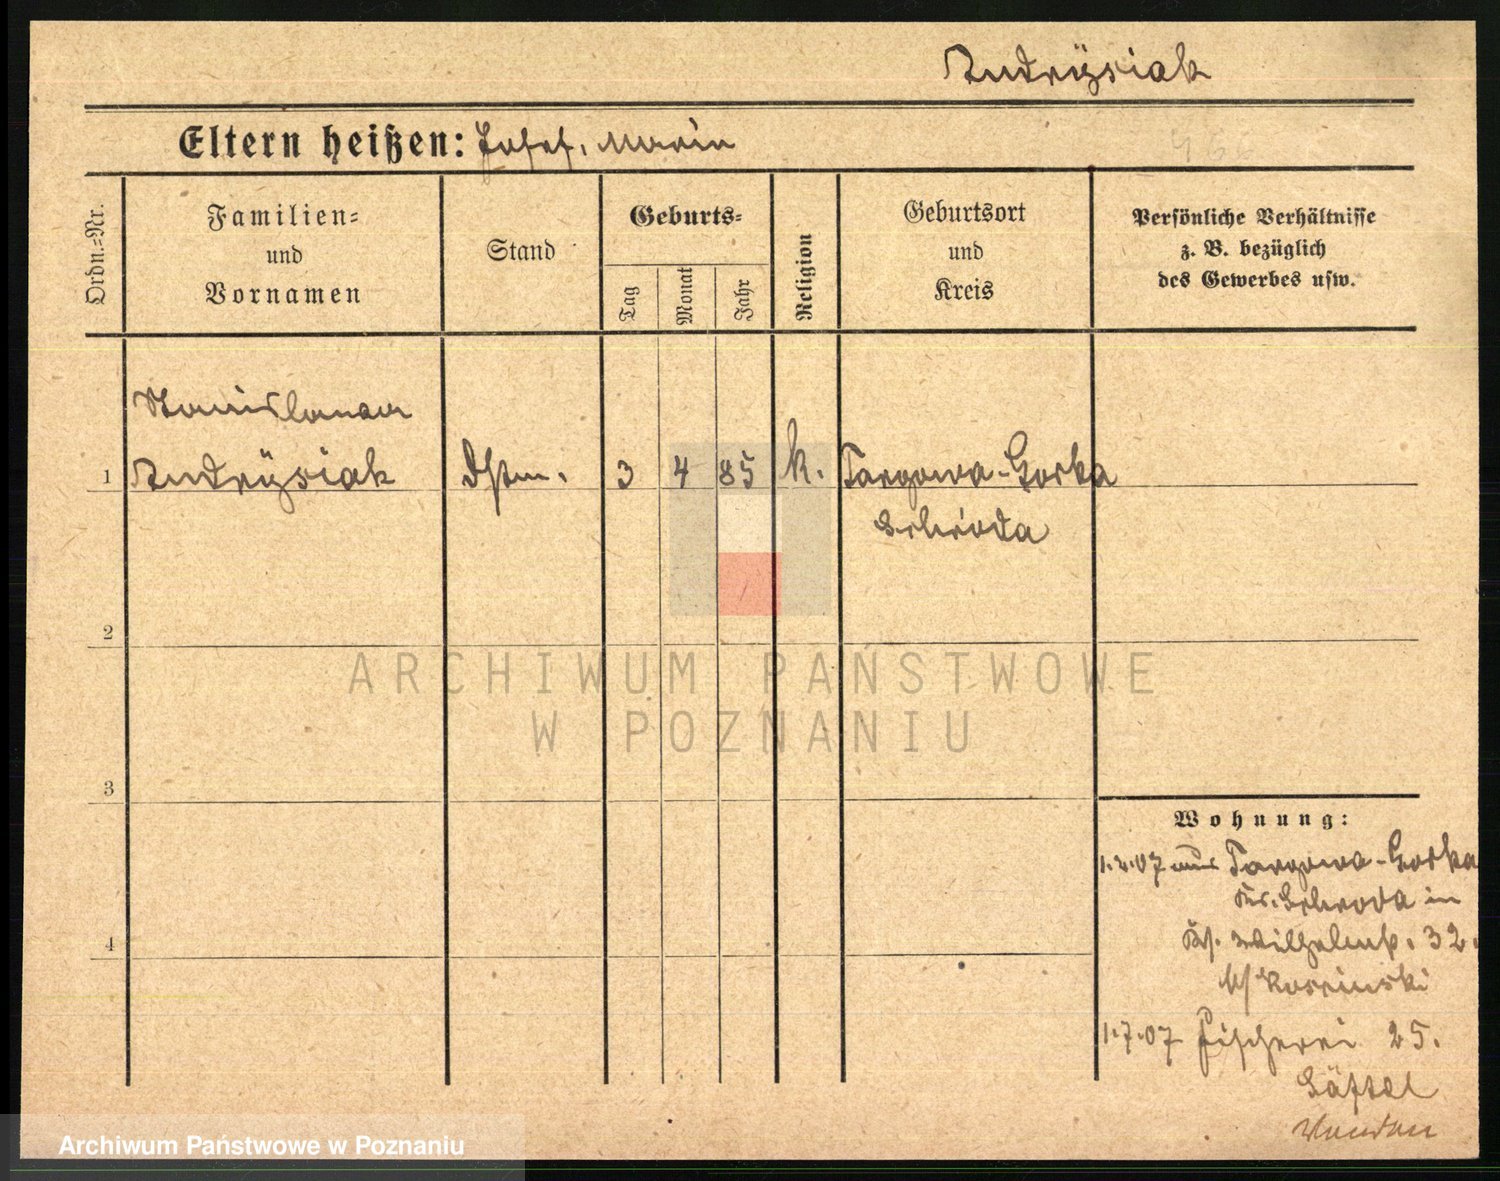 Andrzÿsiak
Eltern heißen: Josef, Maria
Ordn.-Nr.
Familien-
und
Vornamen
Stand
Geburts-
Tag
Monat
Jahr
Religion
Geburtsort
und
Kreis
Persönliche Verhältnisse
z. B. bezüglich
des Gewerbes usw.
Stanislawa
1 Andrzÿsiak Dstm. 3 4 85 k. Targowa-Gorka
Schroda
2
ARCHIWUM PAŃSTWOWE
W POZNANIU
3
Wohnung:
1.2.07 aus Targowa-Gorka
Kr. Schroda in
4
Wilhelmst. 32.
1.7.07 Fischerei 25.
Archiwum Państwowe w Poznaniu